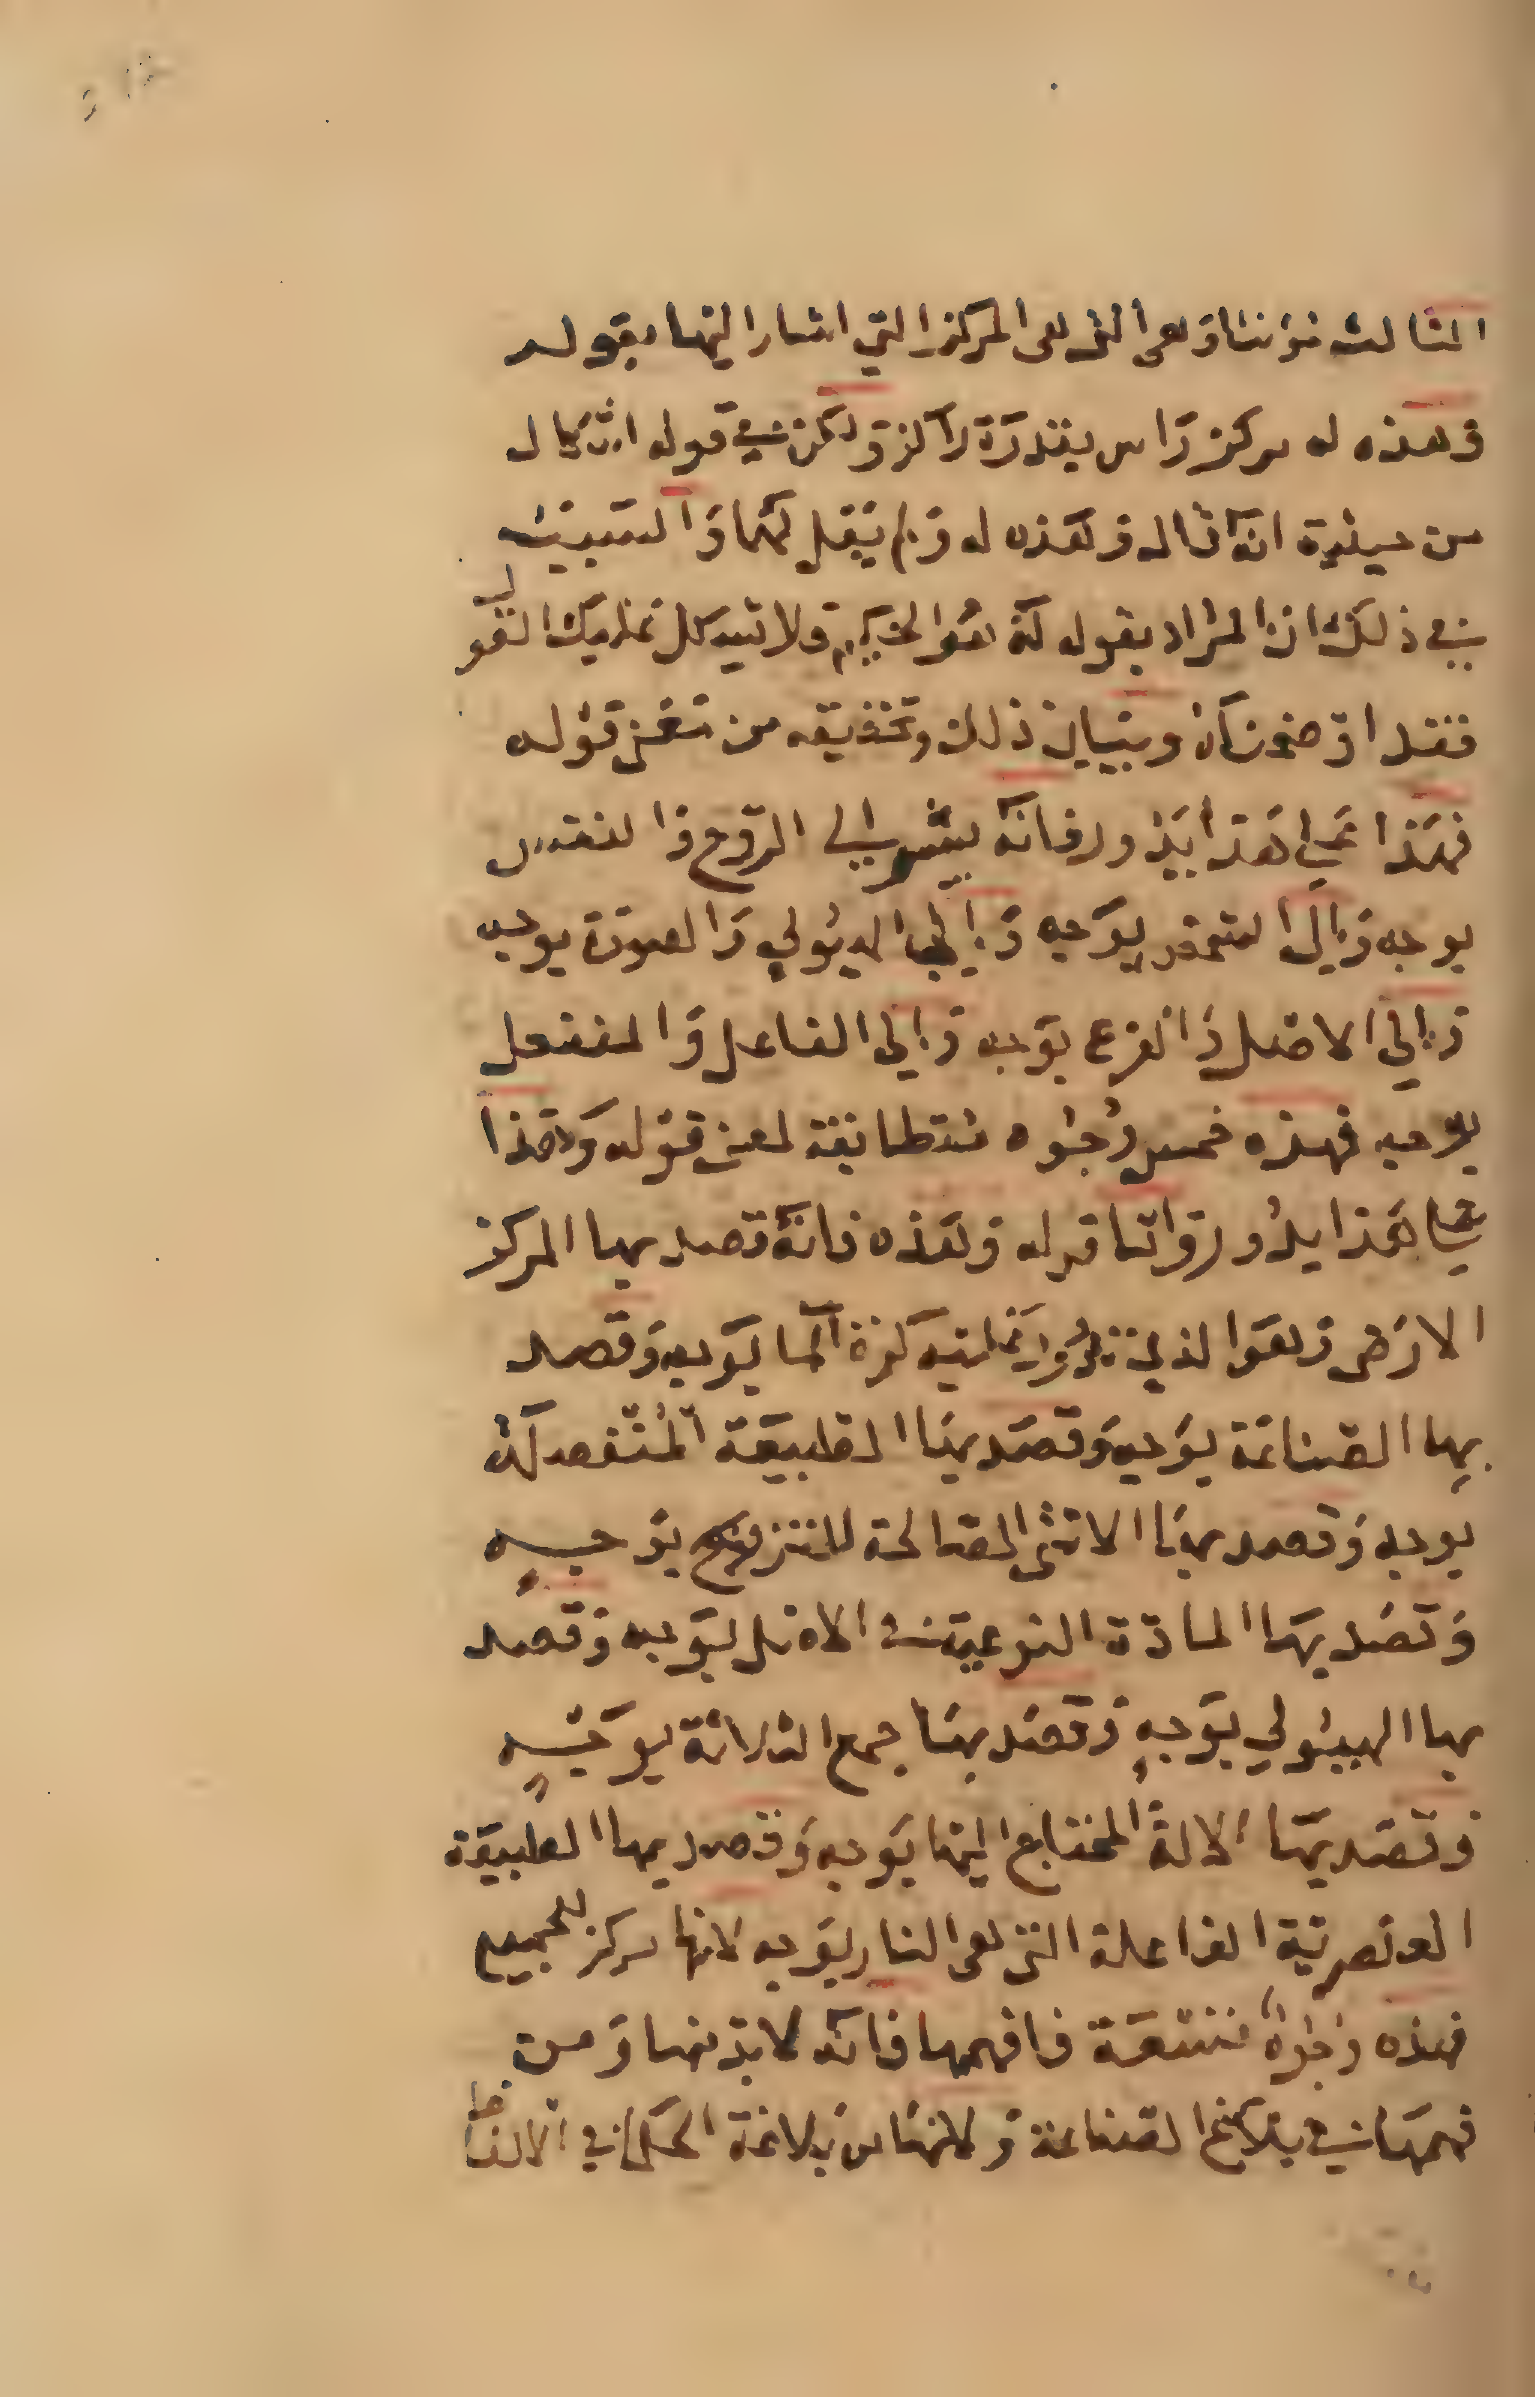 الثالث مؤنثا وهى التى هى المركز التي اشار اليها بقوله
وهذه له مركز راس بقدرة راكز ولكن في قوله اشكال
من حيث انه قال وهذه له ولم يقل لهما والسبب
في ذلك ان المراد بقوله له هو الحكيم ولا
فقد اوضحناه وبيان ذلك وتحقيقه من معنى قوله
فهذا على هذا يدور فانه يشير الى الروح والنفس
بوجه والى بوجه والى الهيولي والصورة بوجه
والى الاصل والفرع بوجه والى الفاعل والمنفعل
بوجه فهذه خمس وجوه متطابقة لمعنى قوله وهذا
على هذا يدور واما قوله وهذه فانه قصد بها المركز
الارض وهو الذي تدور عليه كرة الما بوجه وقصد
بها الصناعة بوجه وقصد بها الطبيعة المنفصلة
بوجه وقصد بها الانثى الصالحة للتزويج بوجه
وقصد بها المادة النوعية في الاصل بوجه وقصد
بها الهيولي بوجه وقصد بها جمع الثلاثة بوجه
وقصد بها الالة المحتاج اليها بوجه وقصد بها الطبيعة
العنصرية الفاعلة التى هى النار بوجه لانها مركز للجميع
فهذه وجوه تسعة فافهمها فانه لابد منها ومن
فهمها في الصناعة ولانها من بلاغة الحكما في الالفاظ